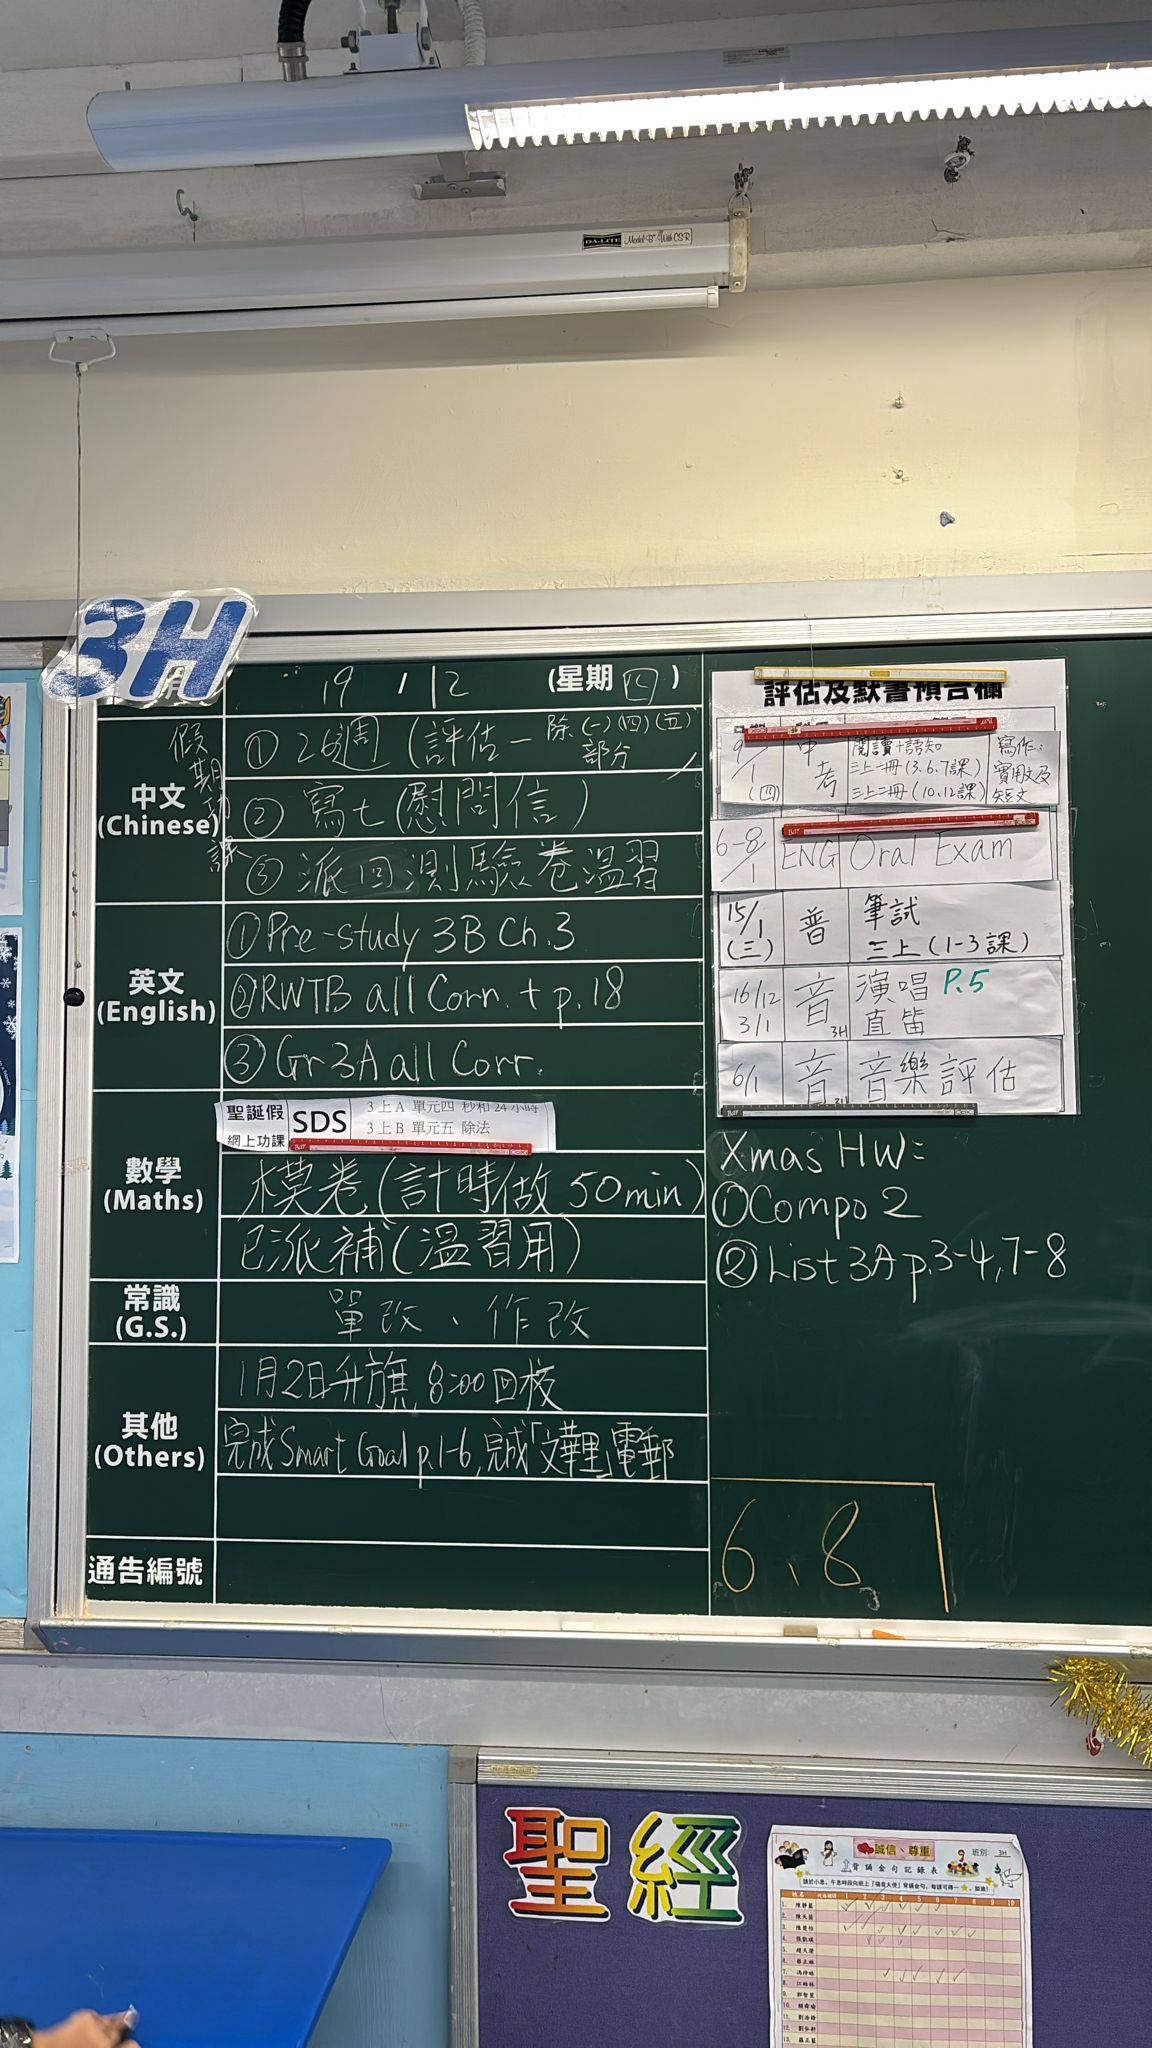 DA-LITE Model B With CSR
3H
19 / 12 (星期四)
中文
(Chinese)
假期功課
① 26週 (評估一 除(一)(四)(五)部分)
② 寫七 (慰問信)
③ 派回測驗卷溫習
英文
(English)
① Pre-study 3B Ch.3
② RWTB all Corr. + p.18
③ Gr 3A all Corr.
數學
(Maths)
聖誕假
網上功課
SDS
3上A 單元四 秒和24小時
3上B 單元五 除法
模卷 (計時做 50min)
已派補 (溫習用)
常識
(G.S.)
單改、作改
其他
(Others)
1月2日升旗 8:00回校
完成Smart Goal p.1-6, 完成「文華里」電郵
通告編號
評估及默書預告欄
9/1 (四) 中考
閱讀+語知
三上一冊(3.6.7課)
三上二冊(10.12課)
寫作:
實用文及
短文
6-8/1 ENG Oral Exam
15/1 (三) 普 筆試
三上(1-3課)
16/12 音 演唱 P.5
3/1 3H 直笛
6/1 音 音樂評估
Xmas HW:
① Compo 2
② List 3A p.3-4, 7-8
6、8
聖經
誠信、尊重
班別: 3H
背誦金句記錄表
姓名
1 2 3 4 5 6 7 8 9 10